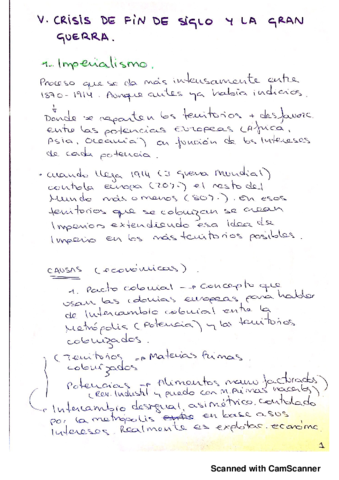 V. CRISIS DE FIN DE SIGLO Y LA GRAN
GUERRA.
1. Imperialismo.
Proceso que se da más intensamente entre
1870-1914. Aunque antes ya había indicios.
Donde se reparten los territorios + desfavore.
entre las potencias europeas (Africa,
Asia, Oceanía) en función de los intereses
de cada potencia.
• cuando llega 1914 (I guerra Mundial)
controla europa (20%) el resto del
Mundo más o menos (80%). en esos
territorios que se colonizan se crean
Imperios extendiendo esa idea de
Imperio en los más territorios posibles.
CAUSAS (económicas).
1. Pacto colonial → Concepto que
usan las colonias europeas para hablar
de Intercambio colonial entre la
Metrópolis (Potencia) y los territorios
colonizados.
(Territorios → Materias Primas.
colonizados
Potencias → Alimentos manufacturados)
(Rev. Industrial y puedo con M. Primas hacerlos)
Intercambio desigual, asimétrico, controlado
por la metrópolis en base a sus
intereses. Realmente es explotac. económc.
1
Scanned with CamScanner